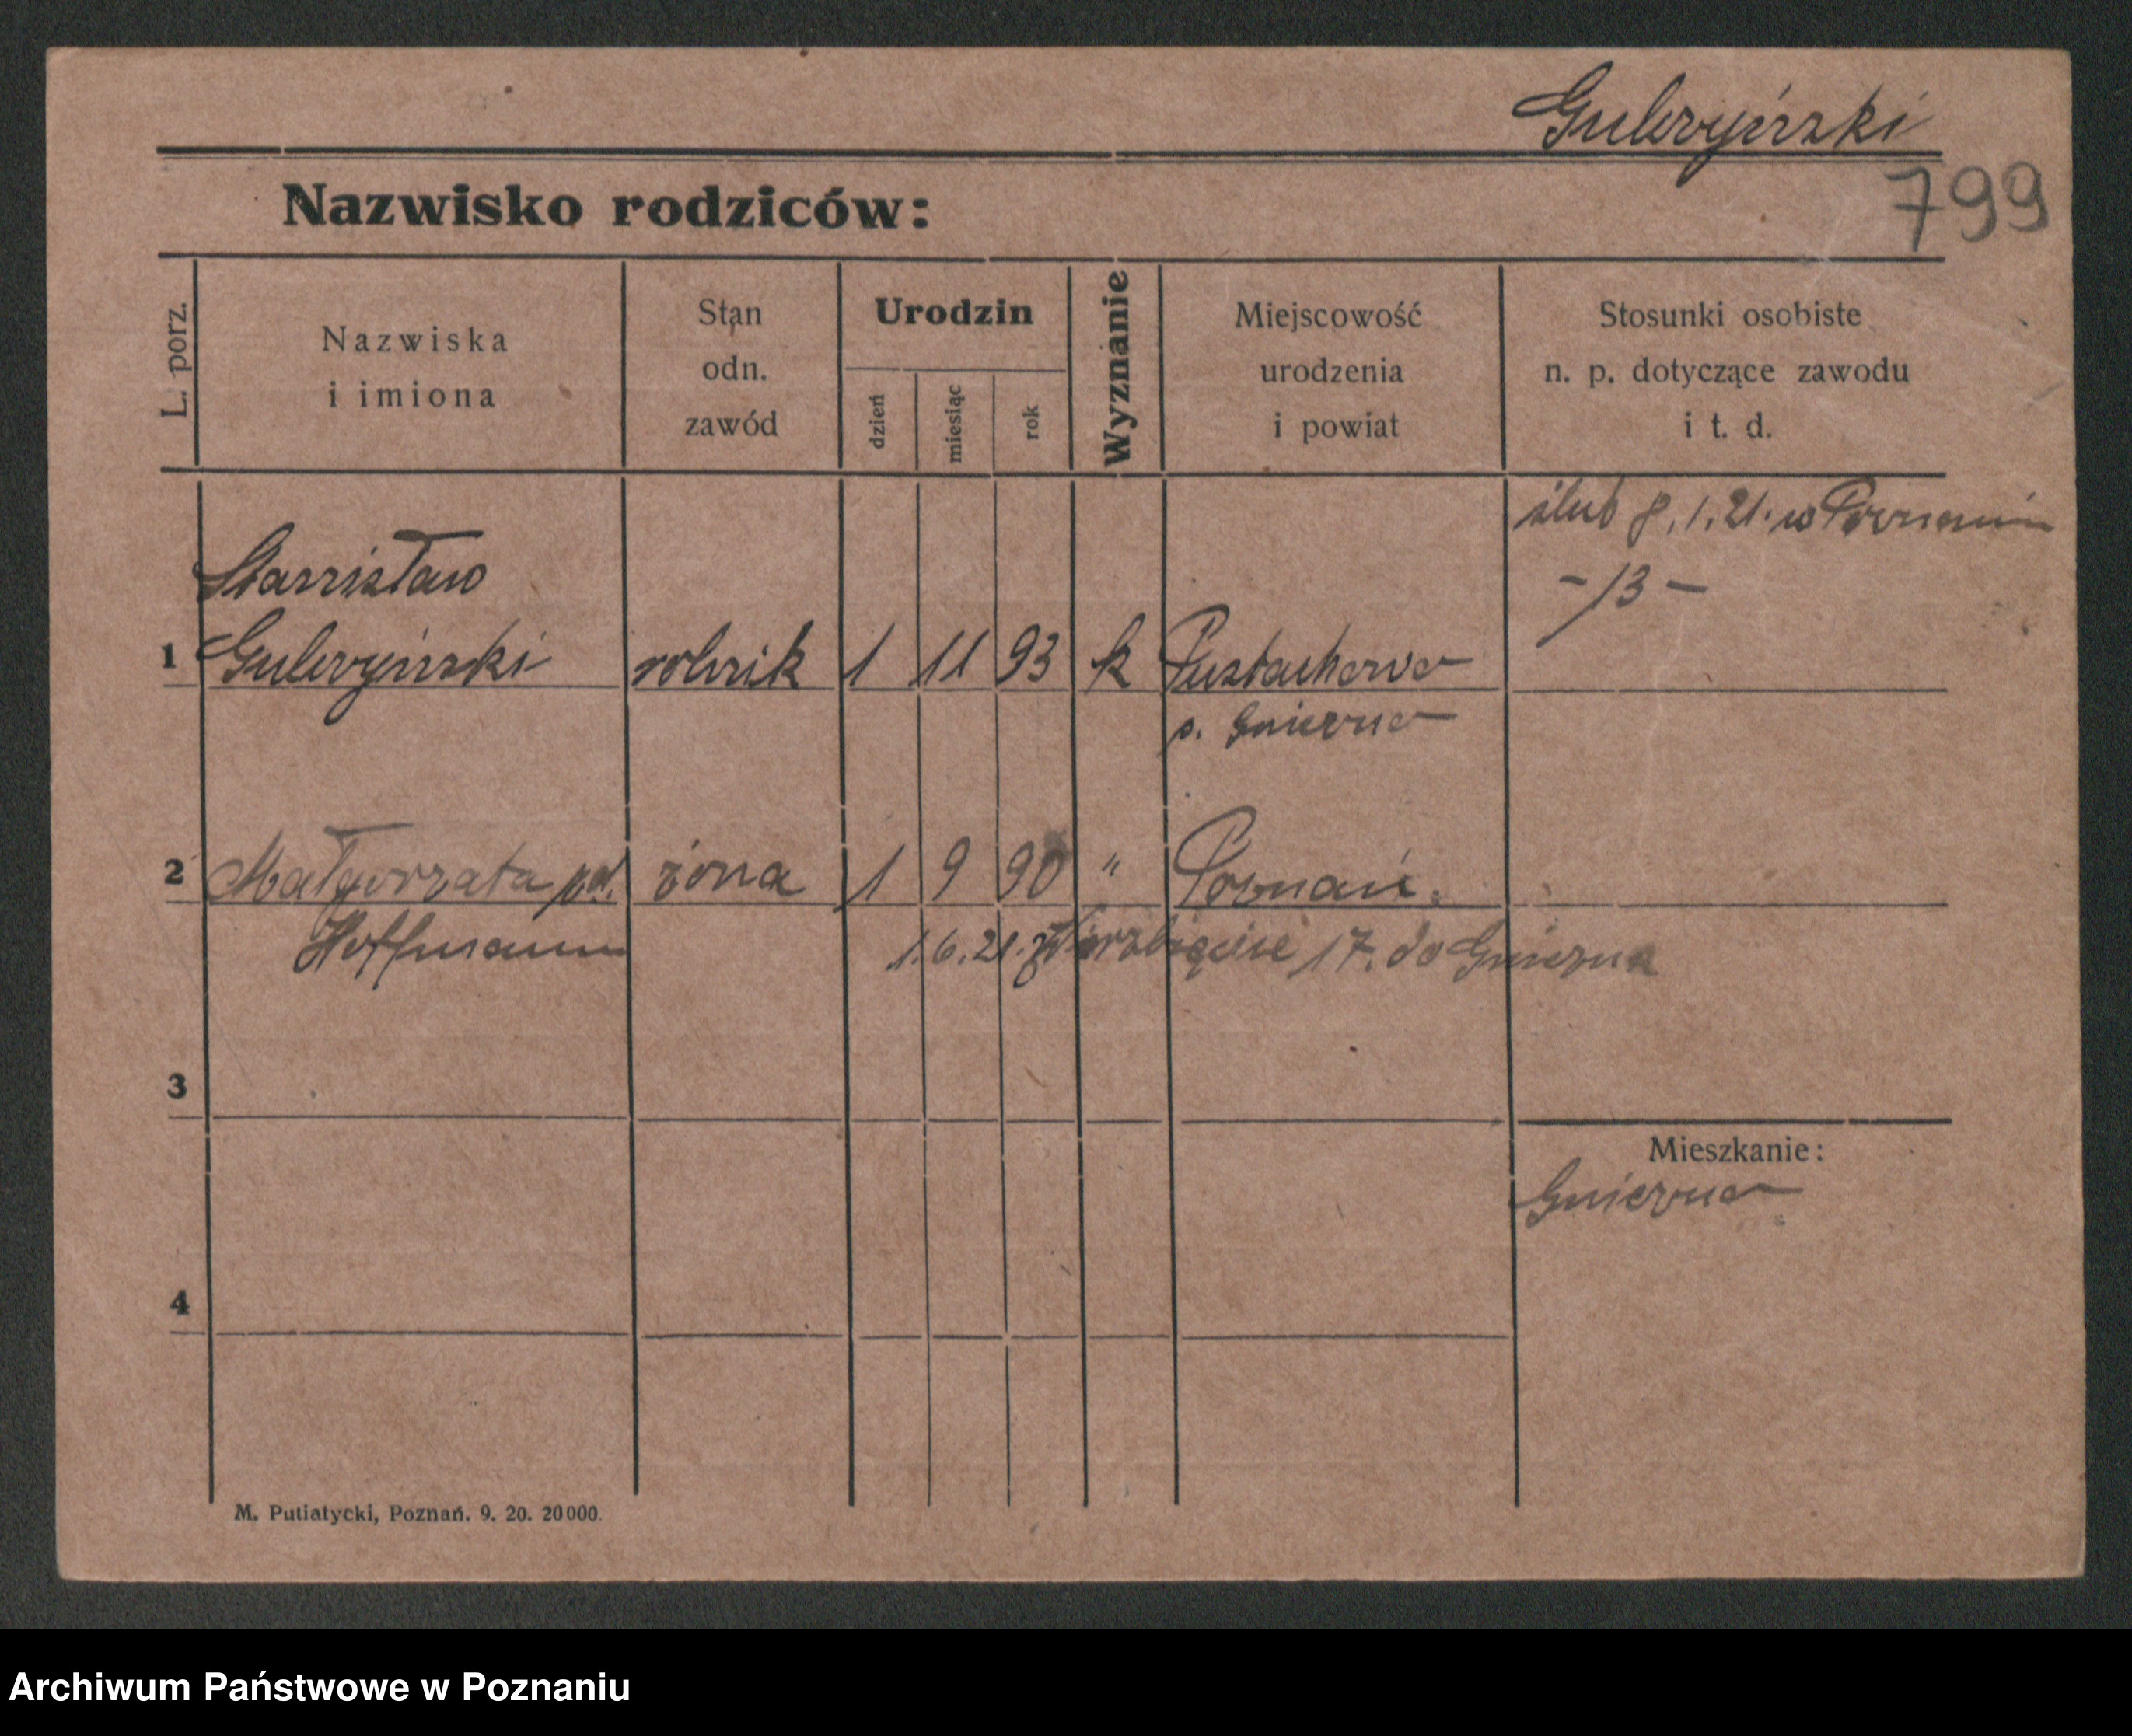 Gulczyński
799
Nazwisko rodziców:
L. porz.
Nazwiska
i imiona
Stan
odn.
zawód
Urodzin
dzień
miesiąc
rok
Wyznanie
Miejscowość
urodzenia
i powiat
Stosunki osobiste
n. p. dotyczące zawodu
i t. d.
ślub 8.1.21. w Poznaniu
-/3-
Stanisław
1 Gulczyński robnik 1 11 93 k Pustachowa
p. Gniezno
2 Małgorzata żona 1 9 90 " Poznań.
Hoffmann 1.6.21. Wierzbięcice 17. do Gniezna
3
Mieszkanie:
Gniezno
4
M. Putiatycki, Poznań. 9. 20. 20000.
Archiwum Państwowe w Poznaniu